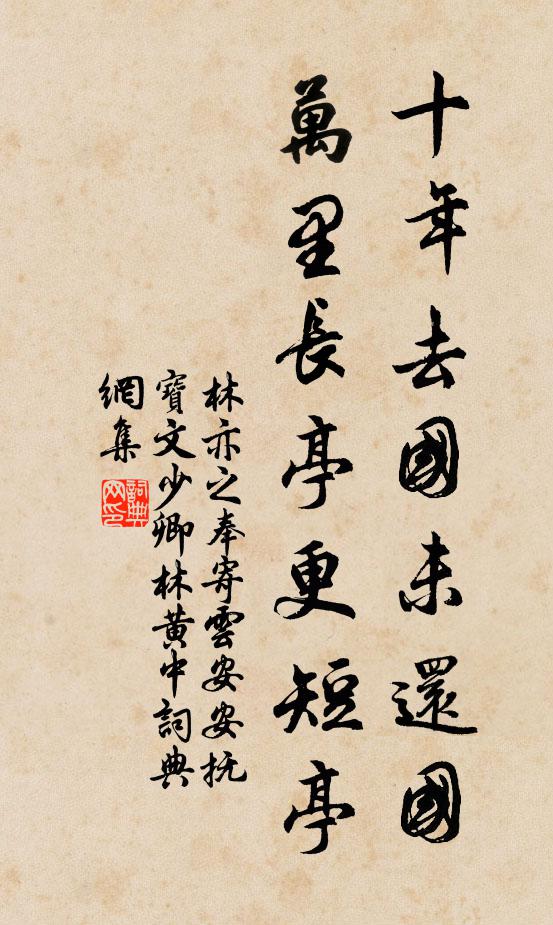 十年去國未還國
萬里長亭更短亭
林亦之奉寄雲安安抚
寶文少卿林黄中詞典
網集
詞典網印